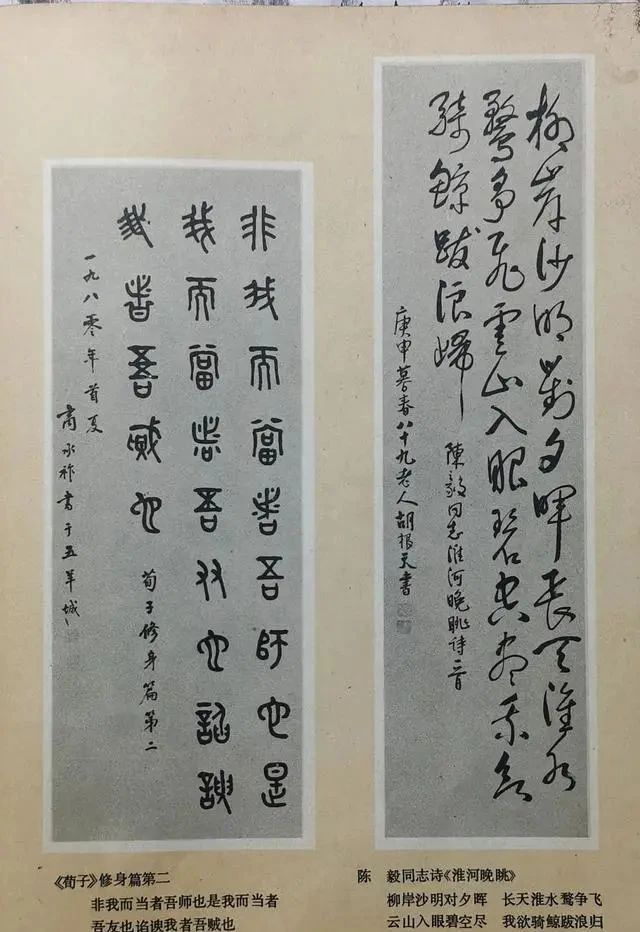 非我而當者吾師也是
我而當者吾友也諂諛
我者吾賊也
荀子修身篇第二
一九八零年首夏
商承祚書于五羊城
柳岸沙明對夕暉長天淮水
鶩爭飛雲山入眼碧空盡我欲
騎鯨跋浪歸
陳毅同志淮河晚眺詩一首
庚申暮春八十九老人胡根天書
《荀子》修身篇第二
非我而当者吾师也是我而当者
吾友也谄谀我者吾贼也
陈 毅同志诗《淮河晚眺》
柳岸沙明对夕晖 长天淮水鹜争飞
云山入眼碧空尽 我欲骑鲸跋浪归